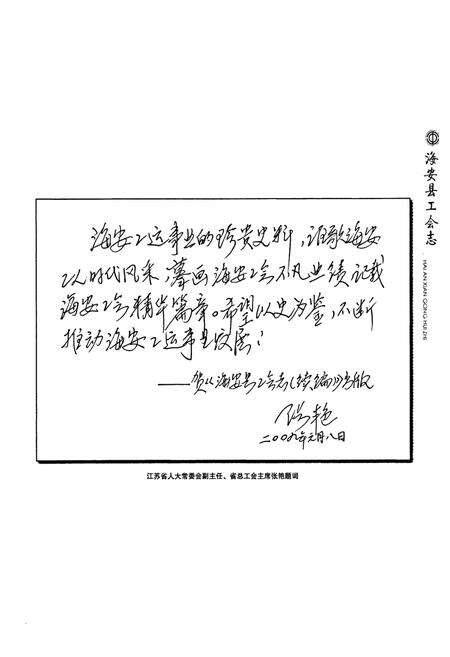 海安工运事业的珍贵史料，讴歌海安
工人时代风采，摹画海安工会不凡业绩，记载
海安工会精华篇章。希望以史为鉴，不断
推动海安工运事业发展！
——贺《海安县工会志（续编）》出版
张艳
二〇〇九年元月八日
江苏省人大常委会副主任、省总工会主席张艳题词
海安县工会志
HAI AN XIAN GONG HUI ZHI